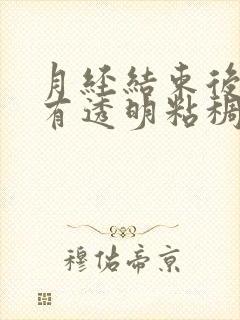 月经結束後
有透明粘稠
穆佑帝京